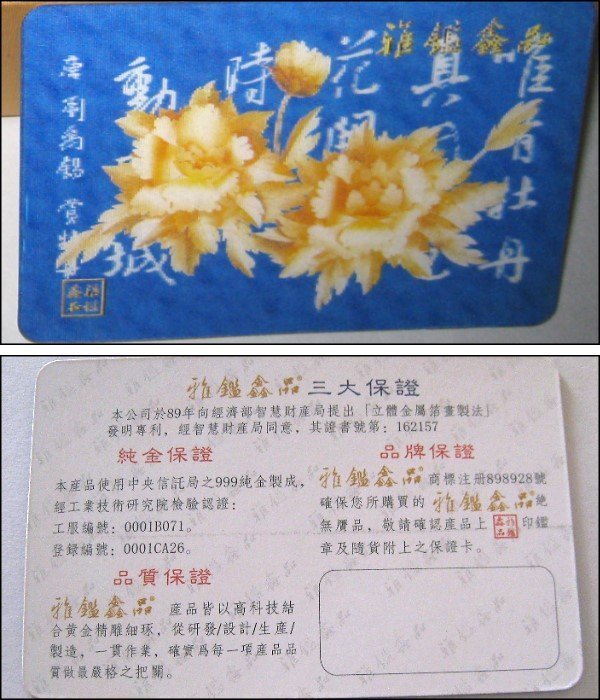 雅鑑鑫品
唯有牡丹
真國色
花開
時
動 城
唐 劉禹錫 賞牡丹
雅鑑鑫品
雅鑑鑫品® 三大保證
本公司於89年向經濟部智慧財產局提出「立體金屬箔畫製法」
發明專利，經智慧財產局同意，其證書號第：162157
純金保證
本產品使用中央信託局之999純金製成，
經工業技術研究院檢驗認證：
工服編號：0001B071。
登錄編號：0001CA26。
品質保證
雅鑑鑫品® 產品皆以高科技結
合黃金精雕細琢，從研發/設計/生產/
製造，一貫作業，確實爲每一項產品品
質做最嚴格之把關。
品牌保證
雅鑑鑫品® 商標注册898928號
確保您所購買的 雅鑑鑫品® 絶
無贋品，敬請確認產品上 雅鑑鑫品 印鑑
章及隨貨附上之保證卡。